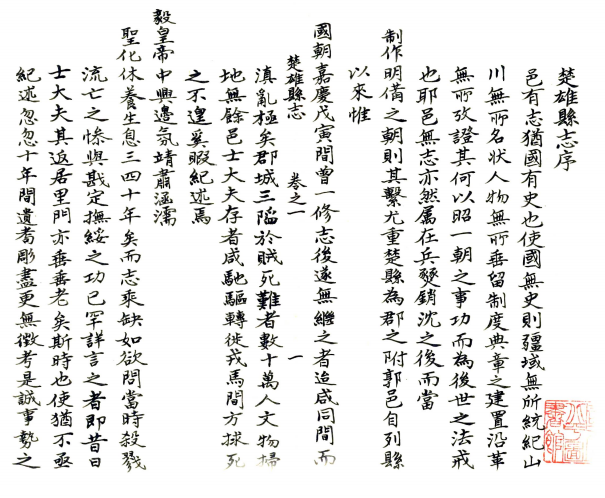 楚雄縣志序
邑有志猶國有史也使國無史則疆域無所統紀山
川無所名狀人物無所垂留制度典章之建置沿革
無所攷證其何以昭一朝之事功而為後世之法戒
也耶邑無志亦然属在兵燹銷沈之後而當
制作明備之朝則其繫尤重楚縣為郡之附郭邑自列縣
以來惟
國朝嘉慶戊寅間曾一修志後遂無繼之者迨咸同間而
楚雄縣志 卷之一 一
滇亂極矣郡城三陷於賊死難者數十萬人文物掃
地無餘邑士大夫存者咸馳驅轉徙戎馬間方捄死
之不遑奚暇紀述焉
毅皇帝中興邊氛靖肅涵濡
聖化休養生息三四十年矣而志乘缺如欲問當時殺戮
流亡之慘與戡定撫綏之功已罕詳言之者即昔日
士大夫其返居里門亦垂垂老矣斯時也使猶不亟
紀述忽忽十年間遺耇彫盡更無徵考是誠事勢之